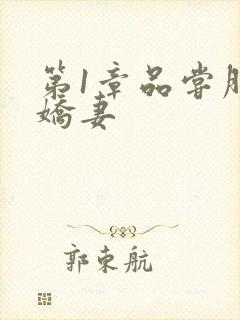 第1章品尝朋
娇妻
郭東航